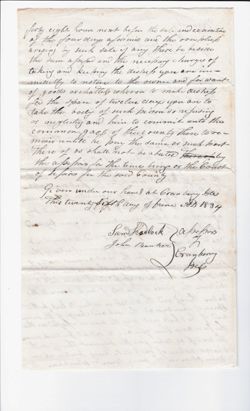 forty eight hours next before the sale and examine
of the four days aforesaid and the overplus
arising by such sale if any there be besides
the sum assess'd and the necessary charges of
taking and keeping the distress you are im-
mediately to return to the owner and for want
of goods or chattels whereon to make distress
for the space of twelve days you are to
take the body of such person so refusing
or neglecting and him to commit unto the
common gaol of the county there to re-
main untill he pay the same or such part
there of as shall not be abated by
the assessors for the time being or the Court
of Sessions for the said County
Given under our hands at Cranberry Isles
This twenty sixth day of June AD 1834
Saml Hadlock
John Bunker
assessors
of
Cranberry
Isles